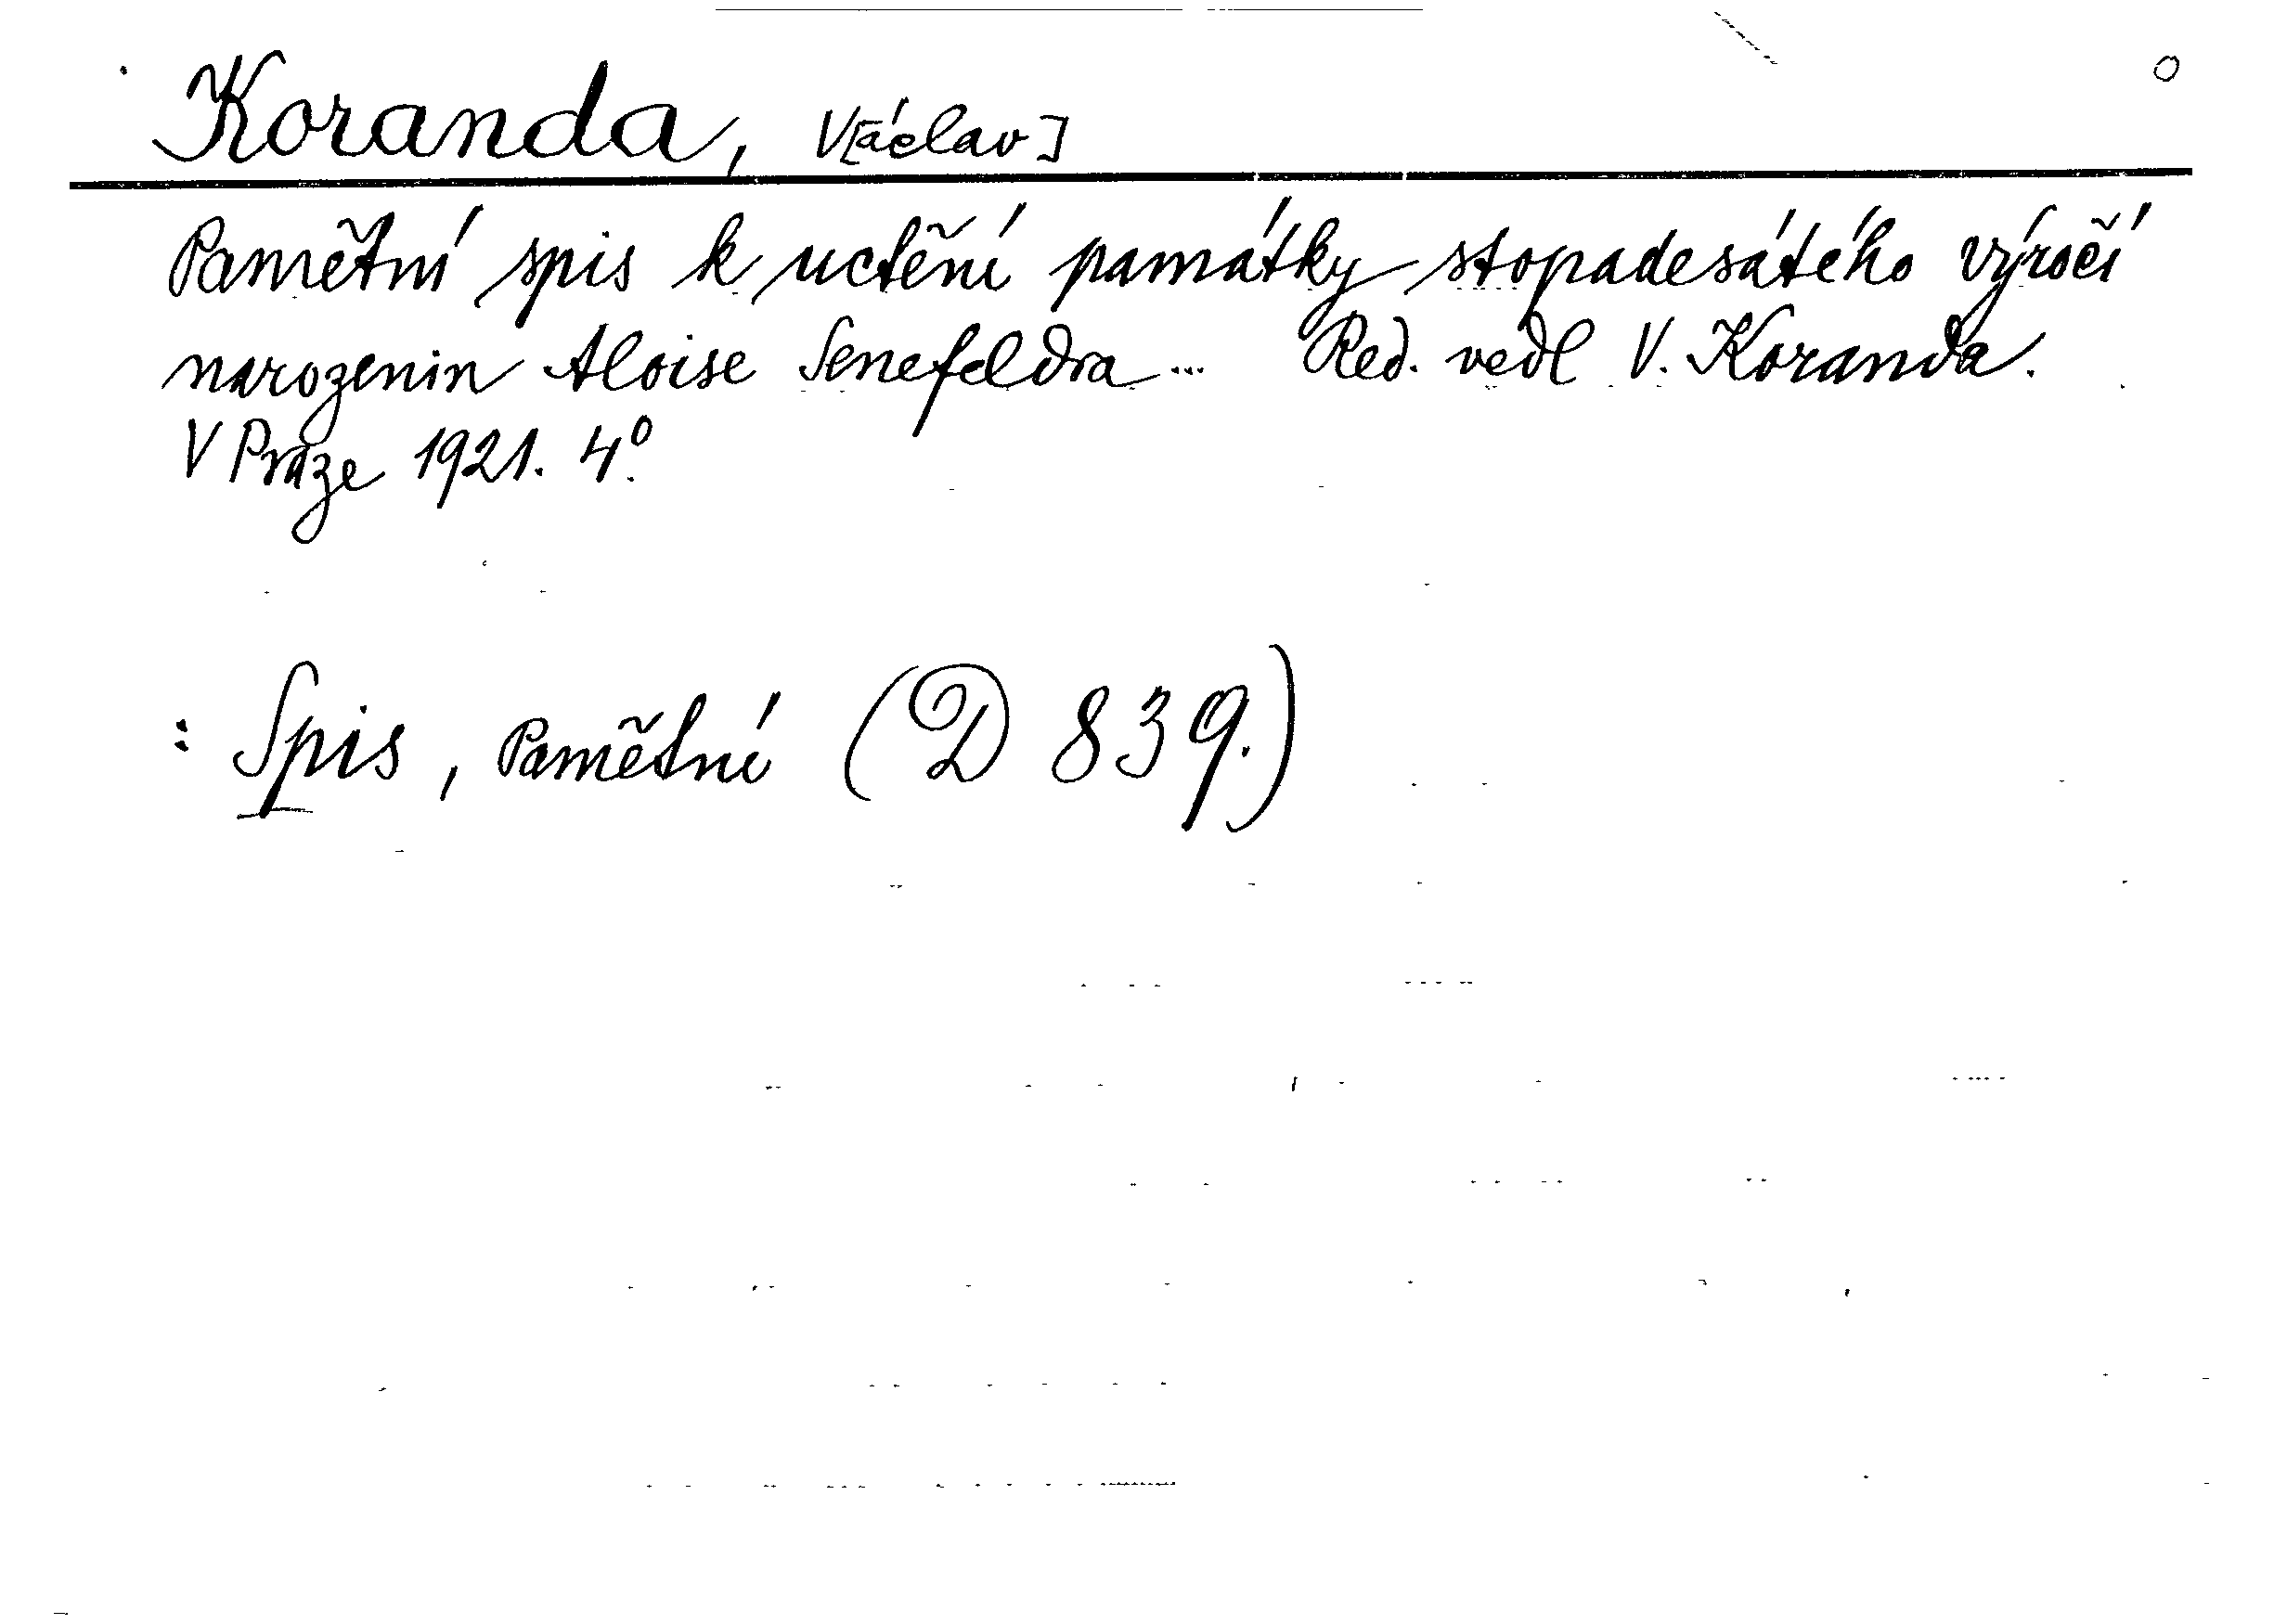 Koranda, V[áclav]
Pamětní spis k uctění památky stopadesátého výročí
narozenin Aloise Senefeldra... Red. vedl V. Koranda.
V Praze 1921. 4°.
: Spis, Pamětní (D 839.)